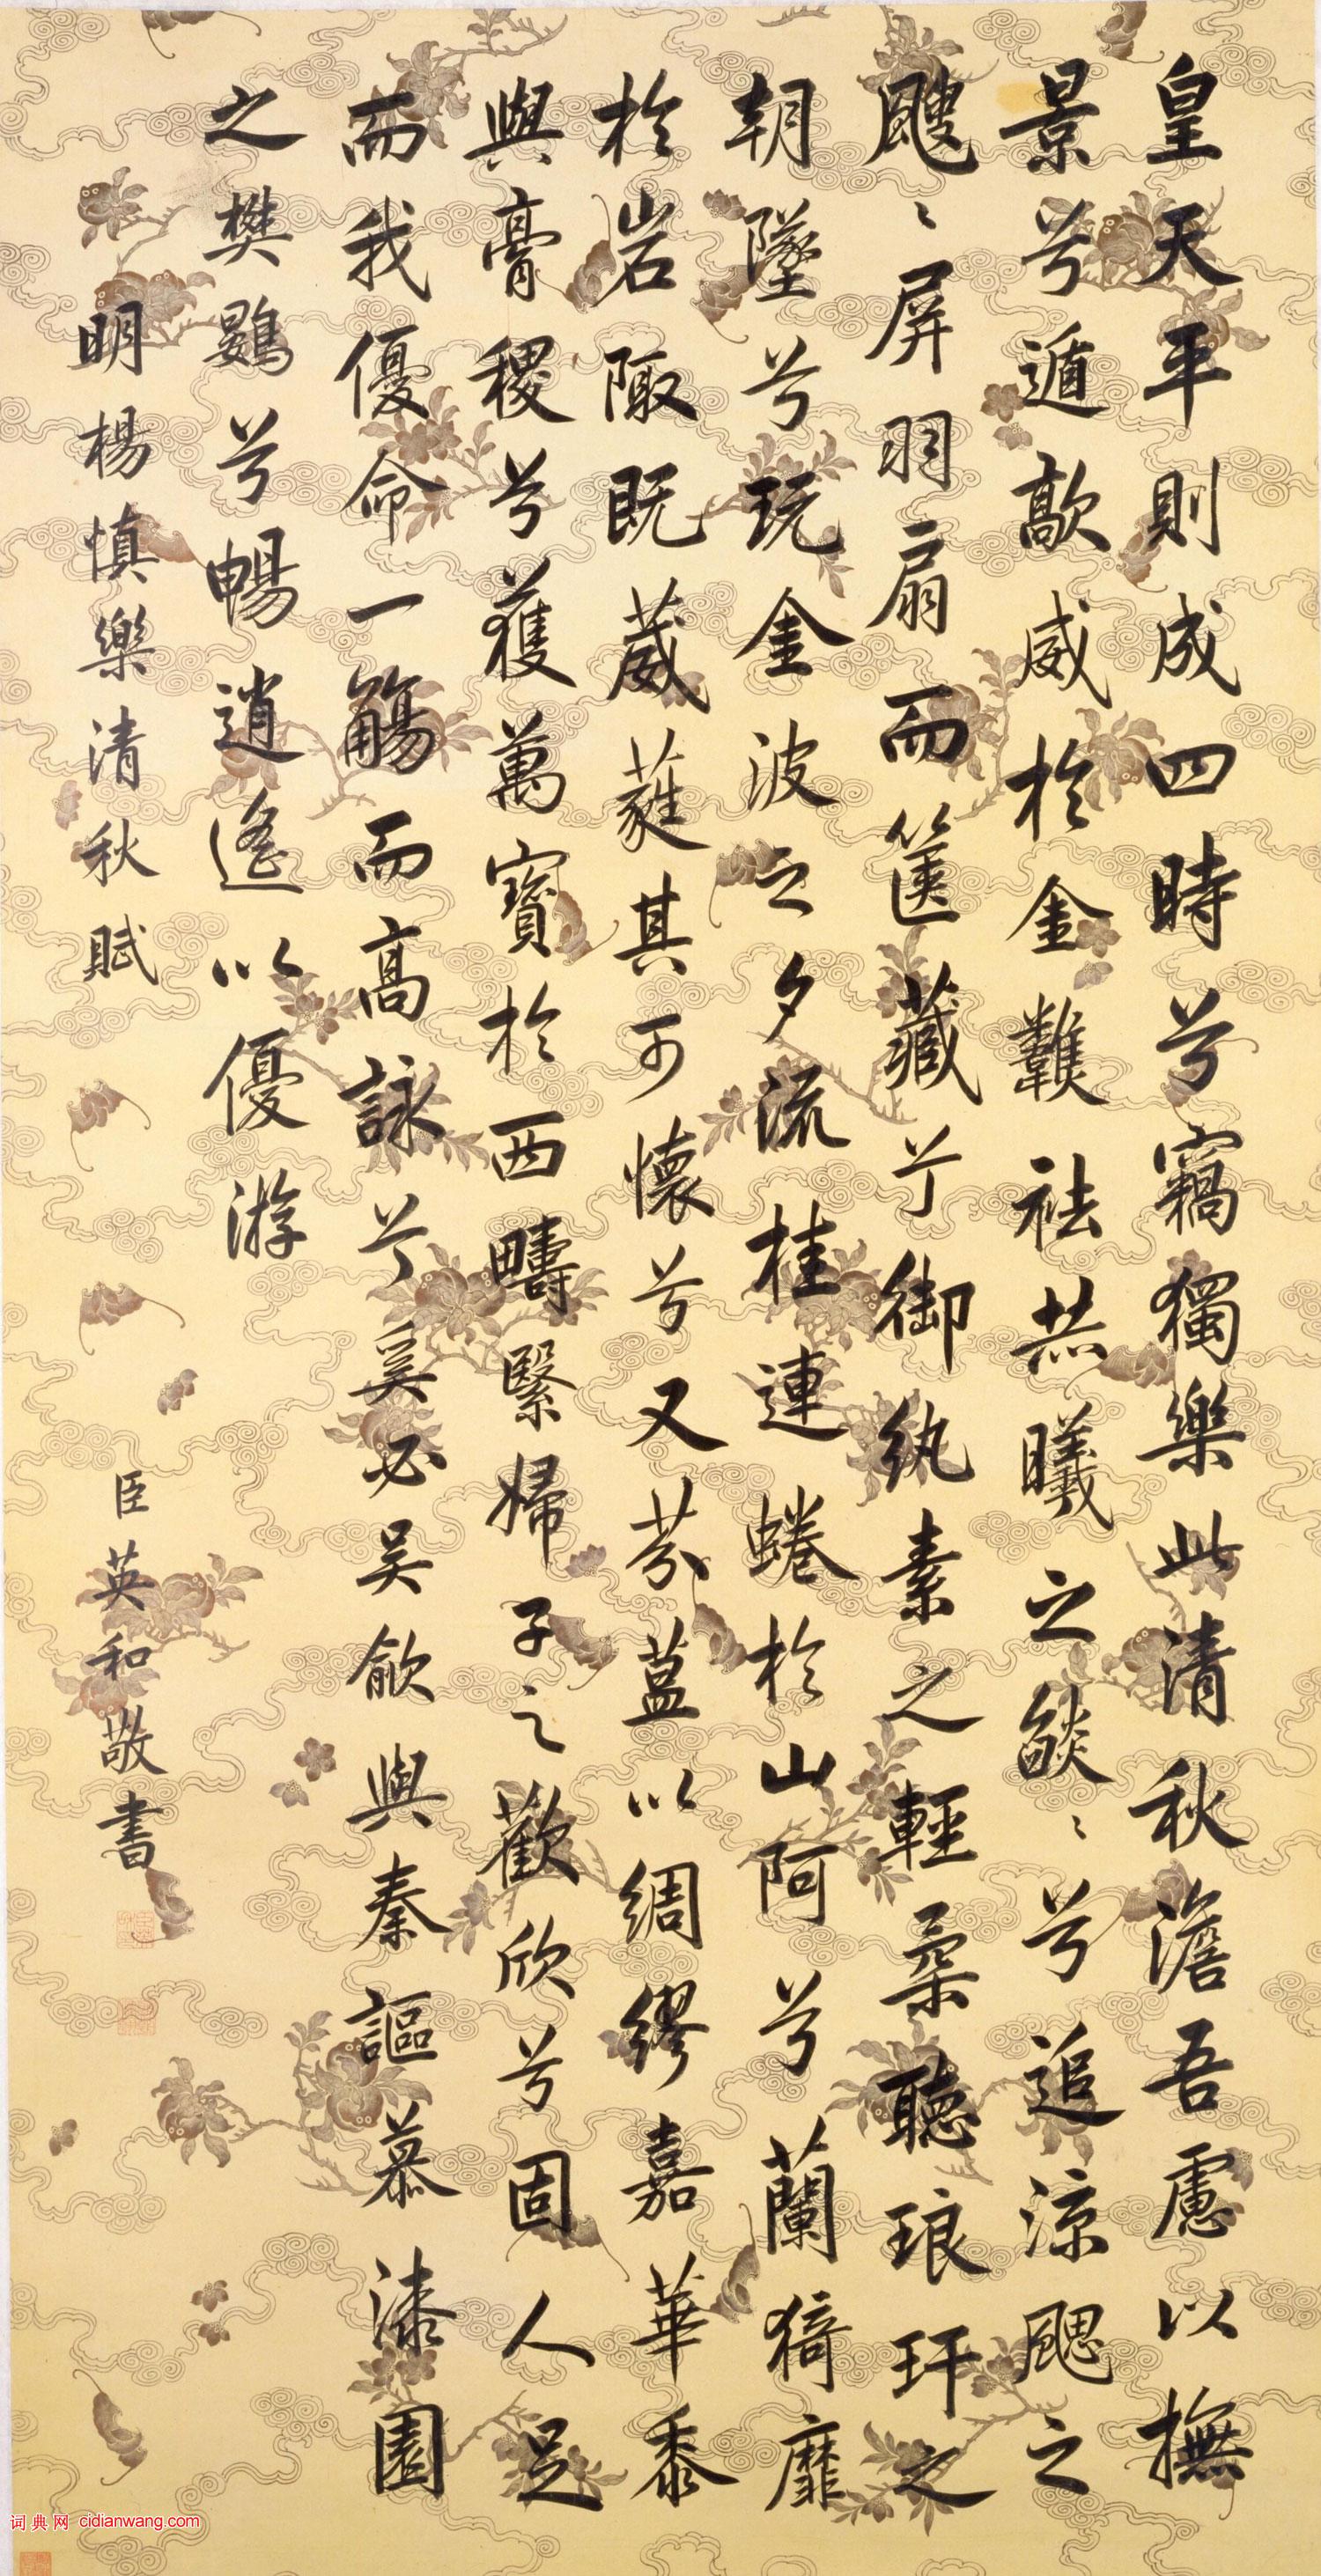 皇天平則成四時兮竊獨樂此清秋澹吾慮以撫
景兮遁歊威於金難祛恭曦之燄〻兮追涼颸之
颼〻屏羽扇而篋藏兮御紈素之輕桑聽琅玕之
朝墜兮玩金波之夕流桂連蜷於山阿兮蘭猗靡
於岩陬既葳蕤其可懷兮又芬葢以綢繆嘉華黍
與膏稷兮獲萬寶於西疇緊婦子之歡欣兮固人足
而我優命一觴而高詠兮奚必吴歈與秦謳慕漆園
之樊鷃兮暢逍遙以優游
明楊慎樂清秋賦
臣英和敬書
词典网 cidianwang.com